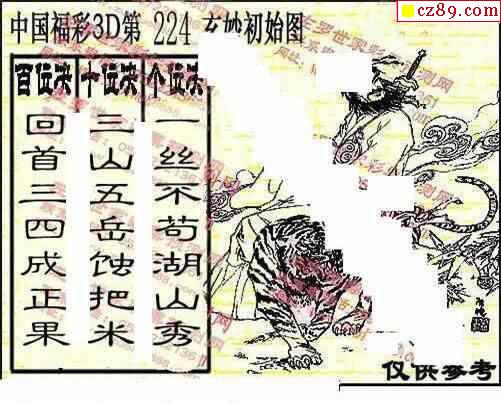 cz89.com
中国福彩3D第 224 玄妙初始图
百位决 十位决 个位决
回首三四成正果
三山五岳蚀把米
一丝不苟湖山秀
仅供参考